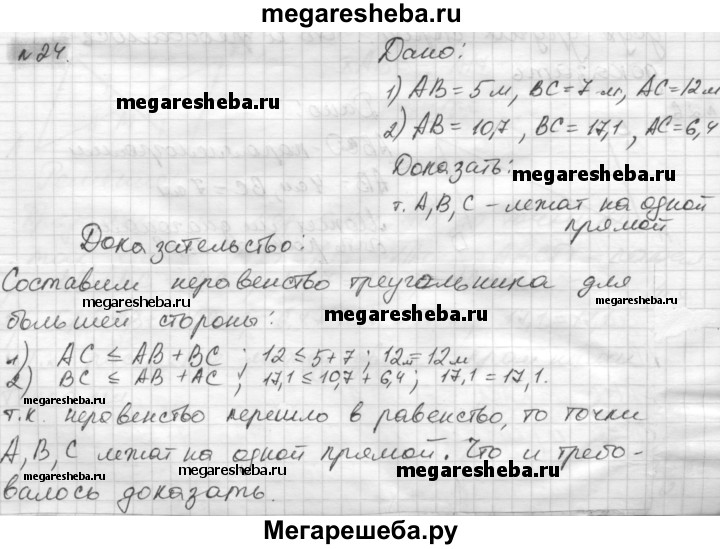 megaresheba.ru
№24.
Дано:
1) AB = 5 м, BC = 7 м, AC = 12 м
megaresheba.ru
2) AB = 10,7, BC = 17,1, AC = 6,4
Доказать:
megaresheba.ru
т. A, B, C - лежат на одной
прямой
Доказательство:
Составим неравенство треугольника для
megaresheba.ru
megaresheba.ru
большей стороны:
megaresheba.ru
1) AC ≤ AB + BC ; 12 ≤ 5 + 7 ; 12м = 12 м
2) BC ≤ AB + AC ; 17,1 ≤ 10,7 + 6,4 ; 17,1 = 17,1.
т.к. неравенство перешло в равенство, то точки
A, B, C лежат на одной прямой. Что и требо-
megaresheba.ru
megaresheba.ru
megaresheba.ru
валось доказать.
Мегарешеба.ру